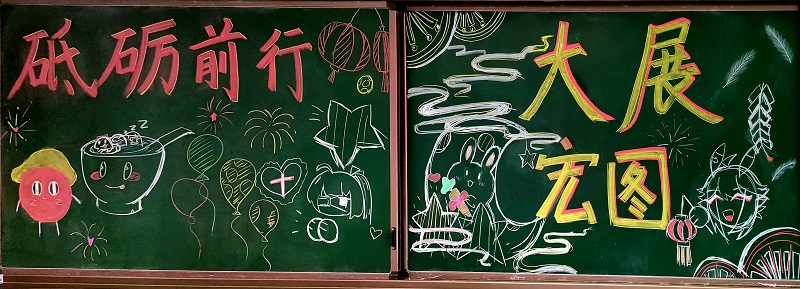 砥砺前行
大展
宏图
zzz